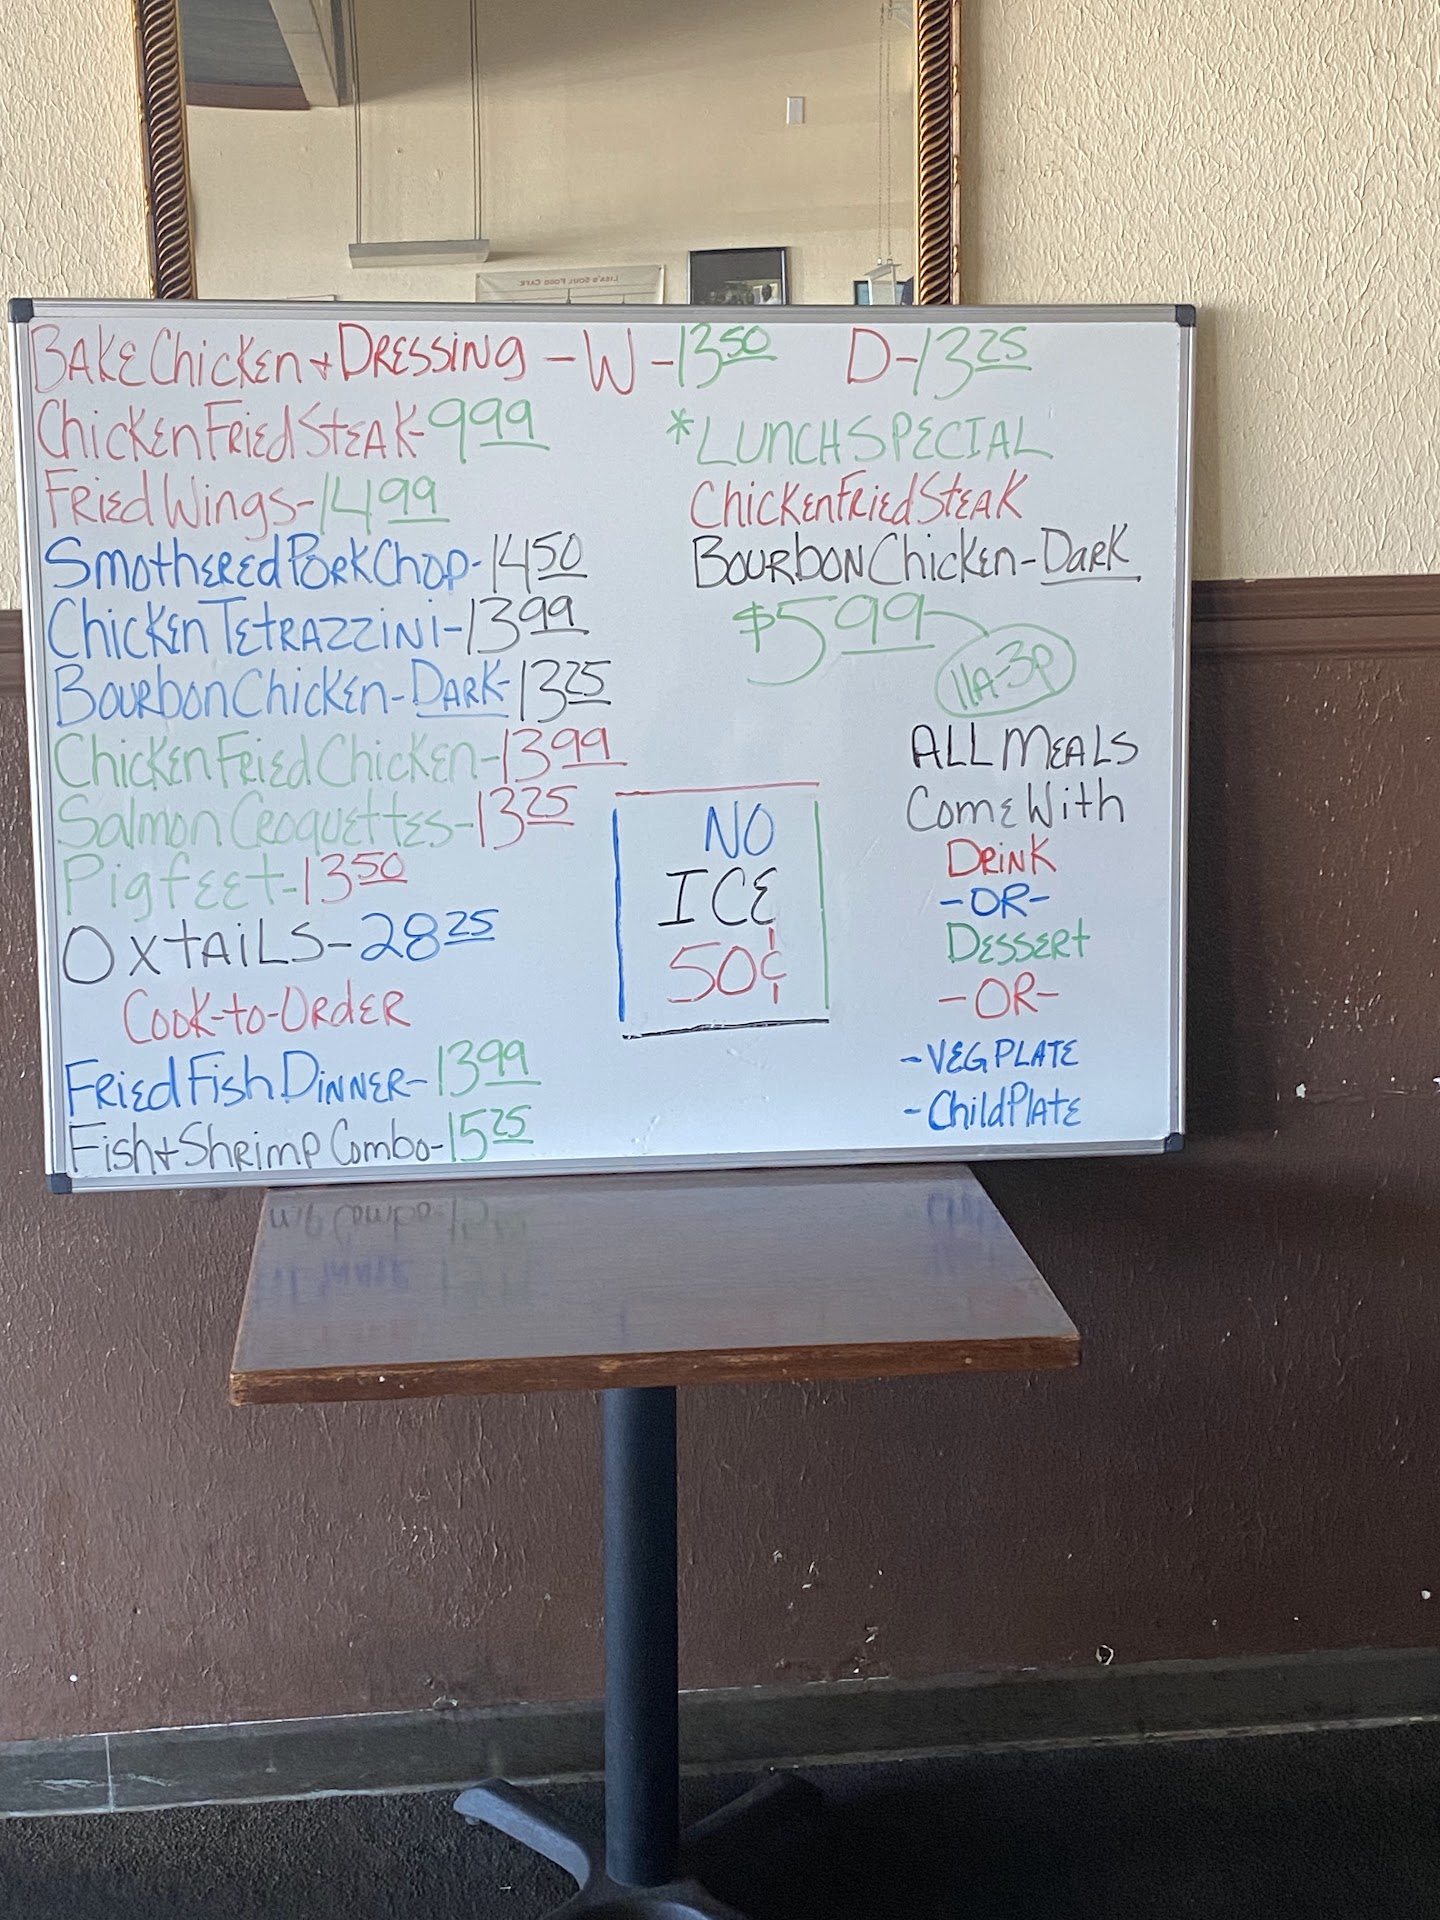 LISA'S SOUL FOOD CAFE
BAKE Chicken + DRESSING - W - 13 50 D - 13 25
Chicken Fried STEAK - 9 99
Fried Wings - 14 99
Smothered Pork Chop - 14 50
Chicken TETRAZZINI - 13 99
Bourbon Chicken - DARK - 13 25
Chicken Fried Chicken - 13 99
Salmon Croquettes - 13 25
Pigfeet - 13 50
OxtAiLS - 28 25
Cook-to-Order
Fried Fish Dinner - 13 99
Fish + Shrimp Combo - 15 25
*LUNCH SPECIAL
Chicken Fried Steak
Bourbon Chicken - Dark
$5 99
11A-3P
NO
ICE
50¢
ALL MEALS
Come With
DRINK
-OR-
DESSERT
-OR-
-VEG PLATE
-Child PLATE